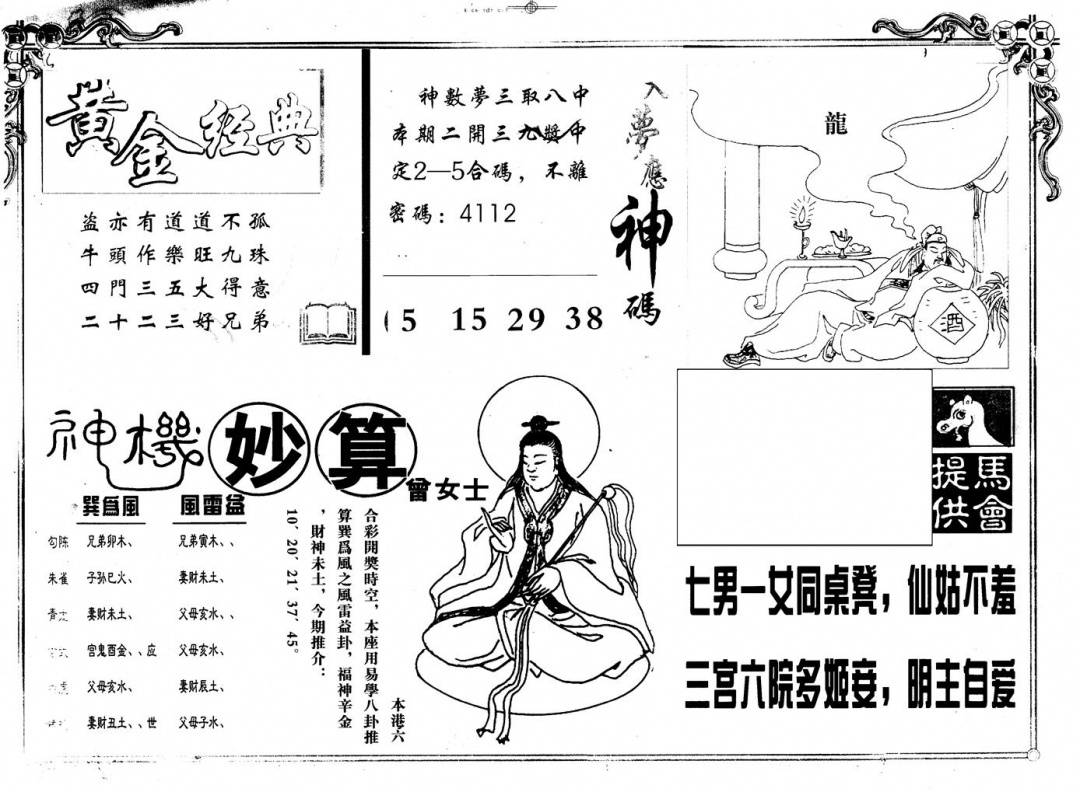 黄金经典
盜亦有道道不孤
牛頭作樂旺九珠
四門三五大得意
二十二三好兄弟
神數夢三取八中
本期二開三九獎中
定2—5合碼，不離
密碼：4112
5 15 29 38
入夢應神碼
龍
酒
神機妙算
曾女士
巽爲風 風雷益
勾陈 兄弟卯木、 兄弟寅木、、
朱雀 子孙巳火、 妻財未土、
妻財未土、 父母亥水、、
官鬼酉金、、应 父母亥水、
父母亥水、 妻財辰土、
妻財丑土、、世 父母子水、
本港六
合彩開獎時空，本座用易學八卦推
算巽爲風之風雷益卦，福神辛金
，財神未土，今期推介：
10′20′21′37′45。
馬會
提供
七男一女同桌凳，仙姑不羞
三宫六院多姬妾，明主自爱